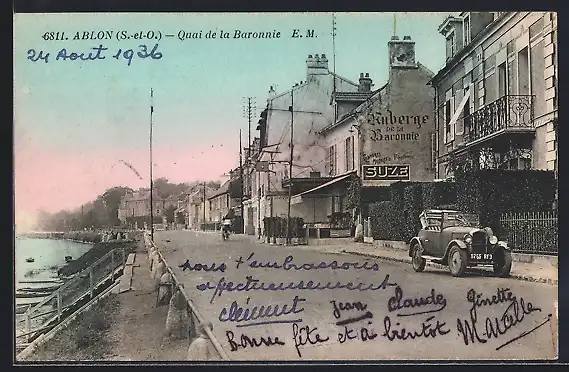 6811. ABLON (S.-et-O.) — Quai de la Baronnie E. M.
24 Août 1936
Auberge
DE LA
Baronnie
SUZE
nous t'embrassons
affectueusement
Clément Jean Claude Ginette
Marcelle
bonne fête et à bientôt